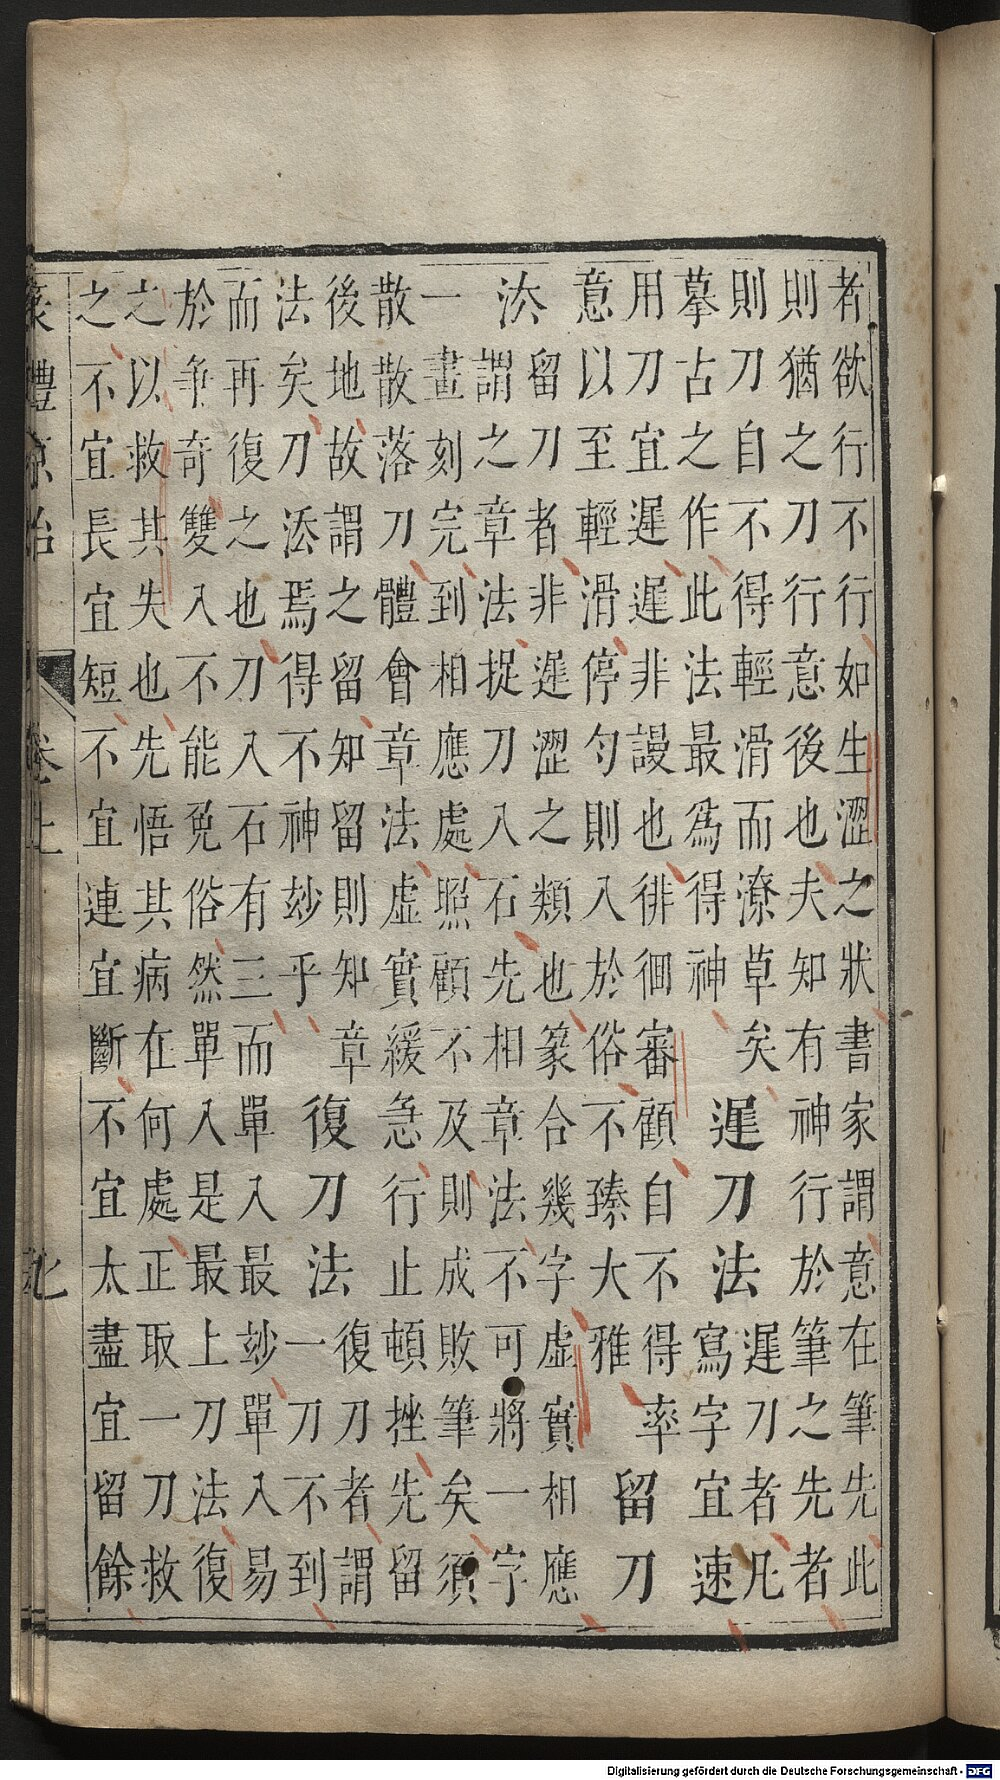 者欲行不行如生澀之狀書家謂意在筆先此
則猶之刀行意後也夫知有神行於筆之先者
則刀自不得輕滑而潦草矣
摹古之作此法最爲得神
遲刀法
遲刀者凡
寫字宜速
用刀宜遲遲非謾也徘徊審顧自不得率
意以至輕滑停勻則入於俗不臻大雅
留刀
法
留刀者非遲澀之類也篆合幾字虛實相應
謂之章法捉刀入石先相章法不可將一字
一畫刻完到相應處照顧不及則成敗筆矣須
散散落刀體會章法虛實緩急行止頓挫先留
後地故謂之留知留則知章
法矣刀法焉得不神玅乎
復刀法
復刀者謂
一刀不到
而再復之也刀入石有三而單入最玅單入易
於爭奇雙入不能免俗然單入是最上刀法復
之以救其失也先悟其病在何處正取一刀救
之不宜長宜短不宜連宜斷不宜太盡宜留餘
卷上
Digitalisierung gefördert durch die Deutsche Forschungsgemeinschaft - DFG